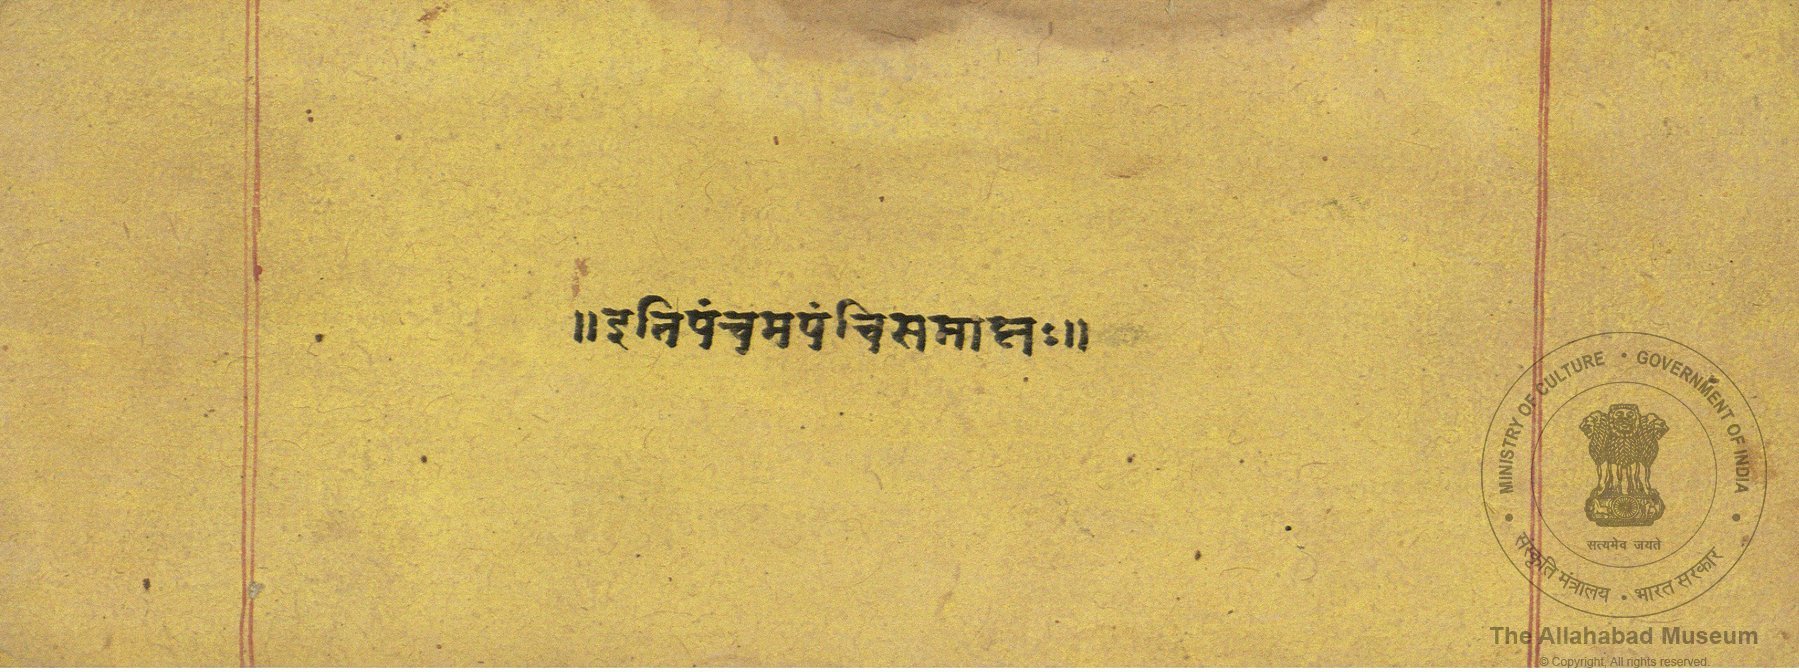 ॥इतिपंचमपंचिसमाप्तः॥
MINISTRY OF CULTURE • GOVERNMENT OF INDIA
सत्यमेव जयते
संस्कृति मंत्रालय • भारत सरकार
The Allahabad Museum
© Copyright, All rights reserved.